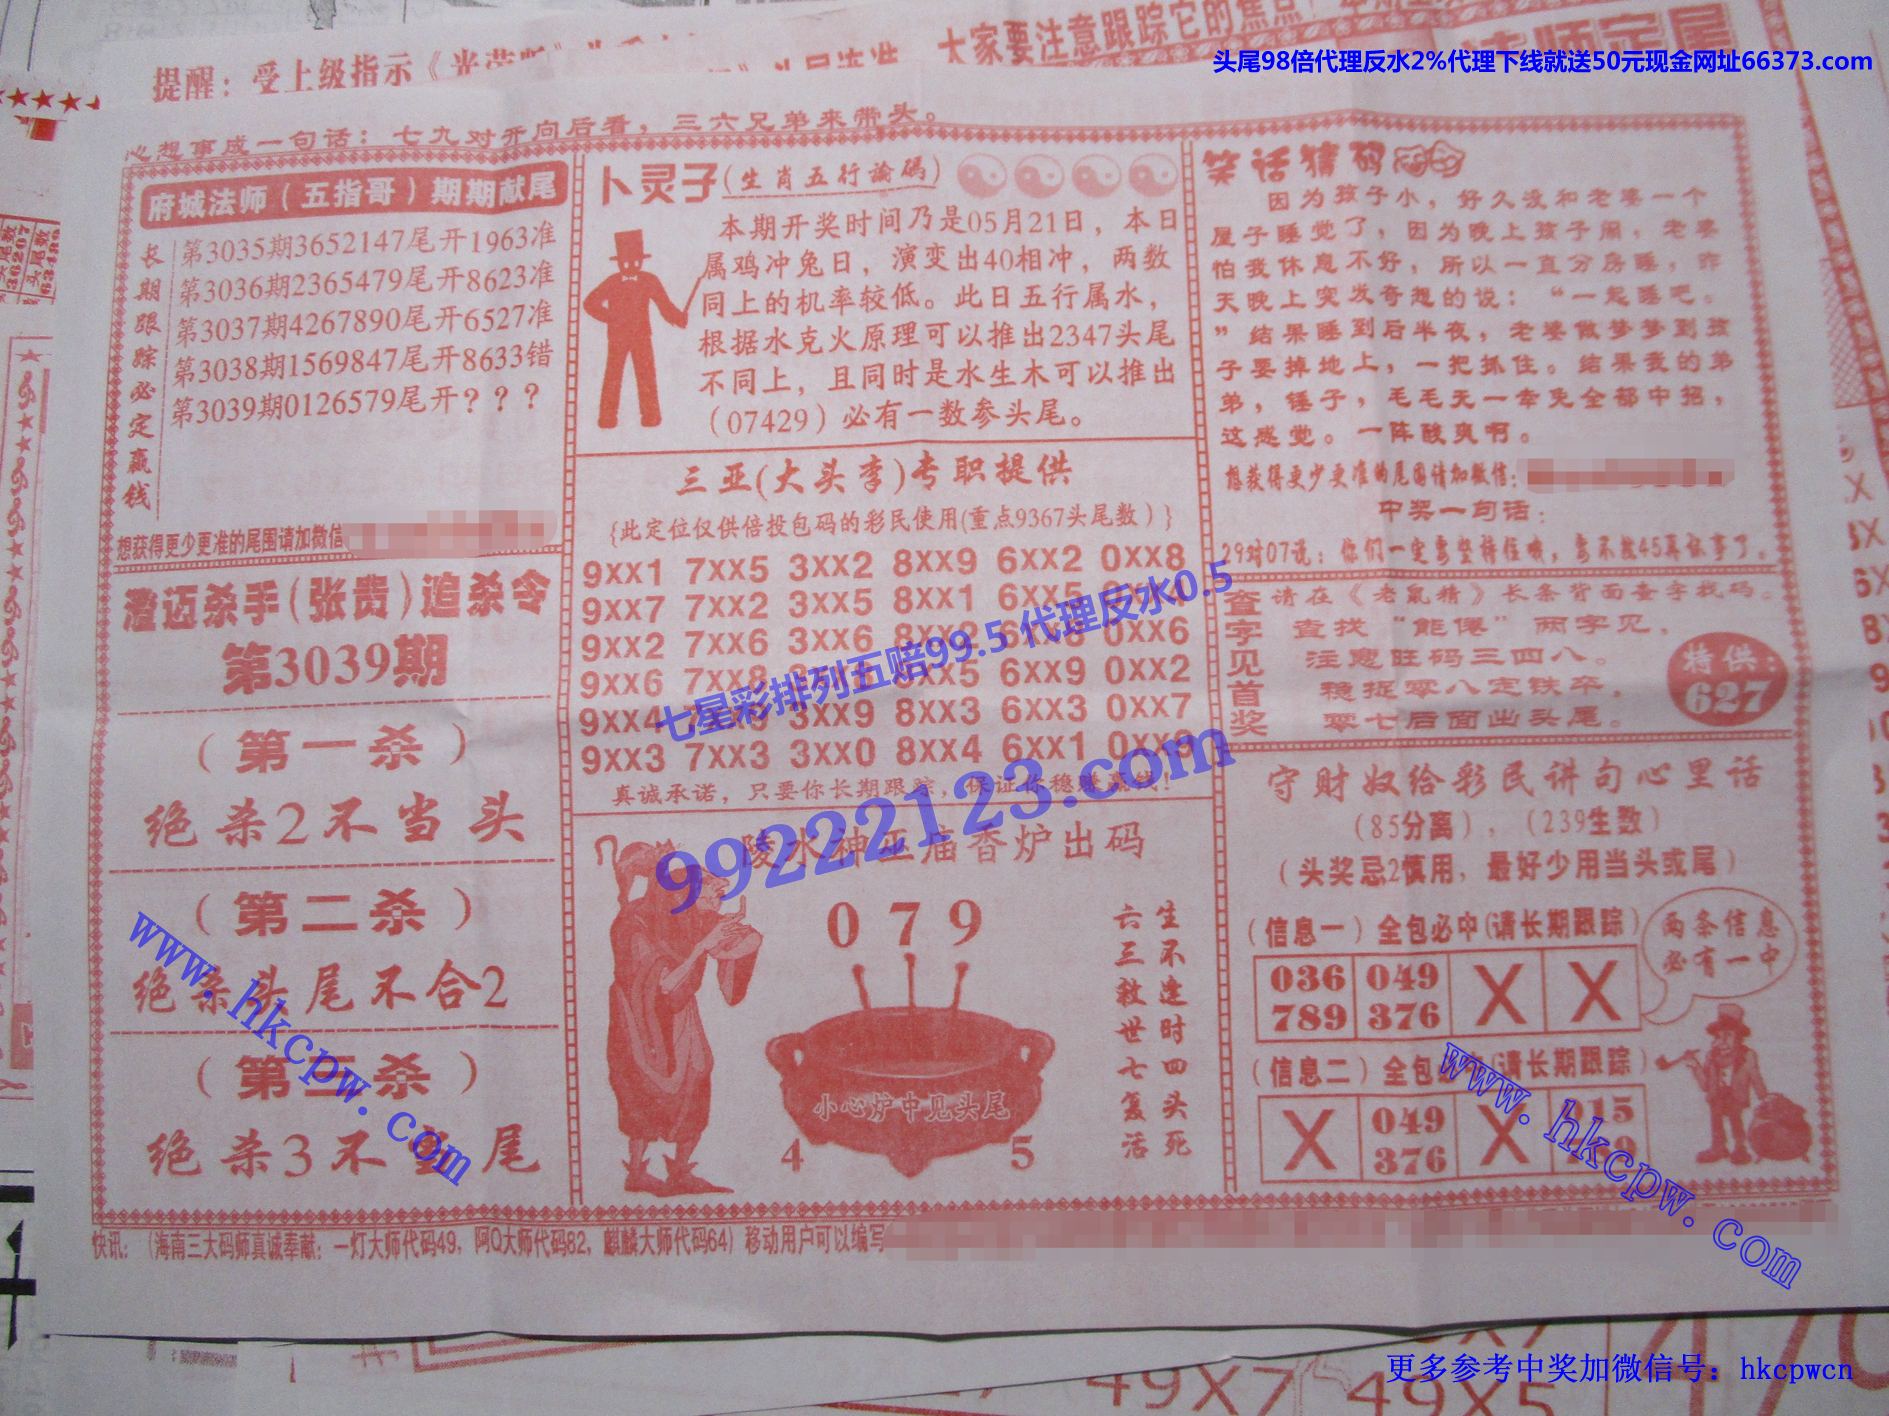 头尾98倍代理反水2%代理下线就送50元现金网址66373.com
提醒：受上级指示《光荣
大家要注意跟踪它的焦点
心想事成一句话：七九对开向后看，三六兄弟来带头。
府城法师（五指哥）期期献尾
长期跟踪必定赢钱
第3035期3652147尾开1963准
第3036期2365479尾开8623准
第3037期4267890尾开6527准
第3038期1569847尾开8633错
第3039期0126579尾开？？？
想获得更少更准的尾围请加微信
澄迈杀手(张贵)追杀令
第3039期
（第一杀）
绝杀2不当头
（第二杀）
绝杀头尾不合2
（第三杀）
绝杀3不当尾
卜灵子(生肖五行論碼)
本期开奖时间乃是05月21日，本日
属鸡冲兔日，演变出40相冲，两数
同上的机率较低。此日五行属水，
根据水克火原理可以推出2347头尾
不同上，且同时是水生木可以推出
（07429）必有一数参头尾。
三亚(大头李)专职提供
{此定位仅供倍投包码的彩民使用(重点9367头尾数）}
9XX1 7XX5 3XX2 8XX9 6XX2 0XX8
9XX7 7XX2 3XX5 8XX1 6XX5
9XX2 7XX6 3XX6 8XX2 0XX6
9XX6 7XX8 6XX9 0XX2
9XX4 3XX9 8XX3 6XX3 0XX7
9XX3 7XX3 3XX0 8XX4 6XX1 0XX9
真诚承诺，只要你长期跟踪，保证你稳赚赢钱！
陵水神巫庙香炉出码
0 7 9
小心炉中见头尾
4 5
生不逢时四头死
六三救世七复活
笑话猜码
因为孩子小，好久没和老婆一个
屋子睡觉了，因为晚上孩子闹，老婆
怕我休息不好，所以一直分房睡，昨
天晚上突发奇想的说：“一起睡吧。
”结果睡到后半夜，老婆做梦梦到孩
子要掉地上，一把抓住。结果我的弟
弟，锤子，毛毛无一幸免全部中招，
这感觉。一阵酸爽啊。
想获得更少更准的尾围请加微信：
中奖一句话：
29对07说：你们一定要坚持住哦，
查字见首奖
请在《老鼠精》长条背面查字找码。
查找“能俾”两字见。
注意旺码三四八。
稳捉零八定铁卒，
零七后面出头尾。
特供：
627
守财奴给彩民讲句心里话
（85分离），（239生数）
（头奖忌2慎用，最好少用当头或尾）
（信息一）全包必中(请长期跟踪)
两条信息
必有一中
036 049 X X
789 376
（信息二）全包必中(请长期跟踪)
X 049 X
376
快讯：（海南三大码师真诚奉献：一灯大师代码49，阿Q大师代码82，麒麟大师代码64）移动用户可以编写
七星彩排列五赔99.5 代理反水0.5
99222123.com
www.hkcpw.com
www.hkcpw.com
49X7 49X5
更多参考中奖加微信号：hkcpwcn